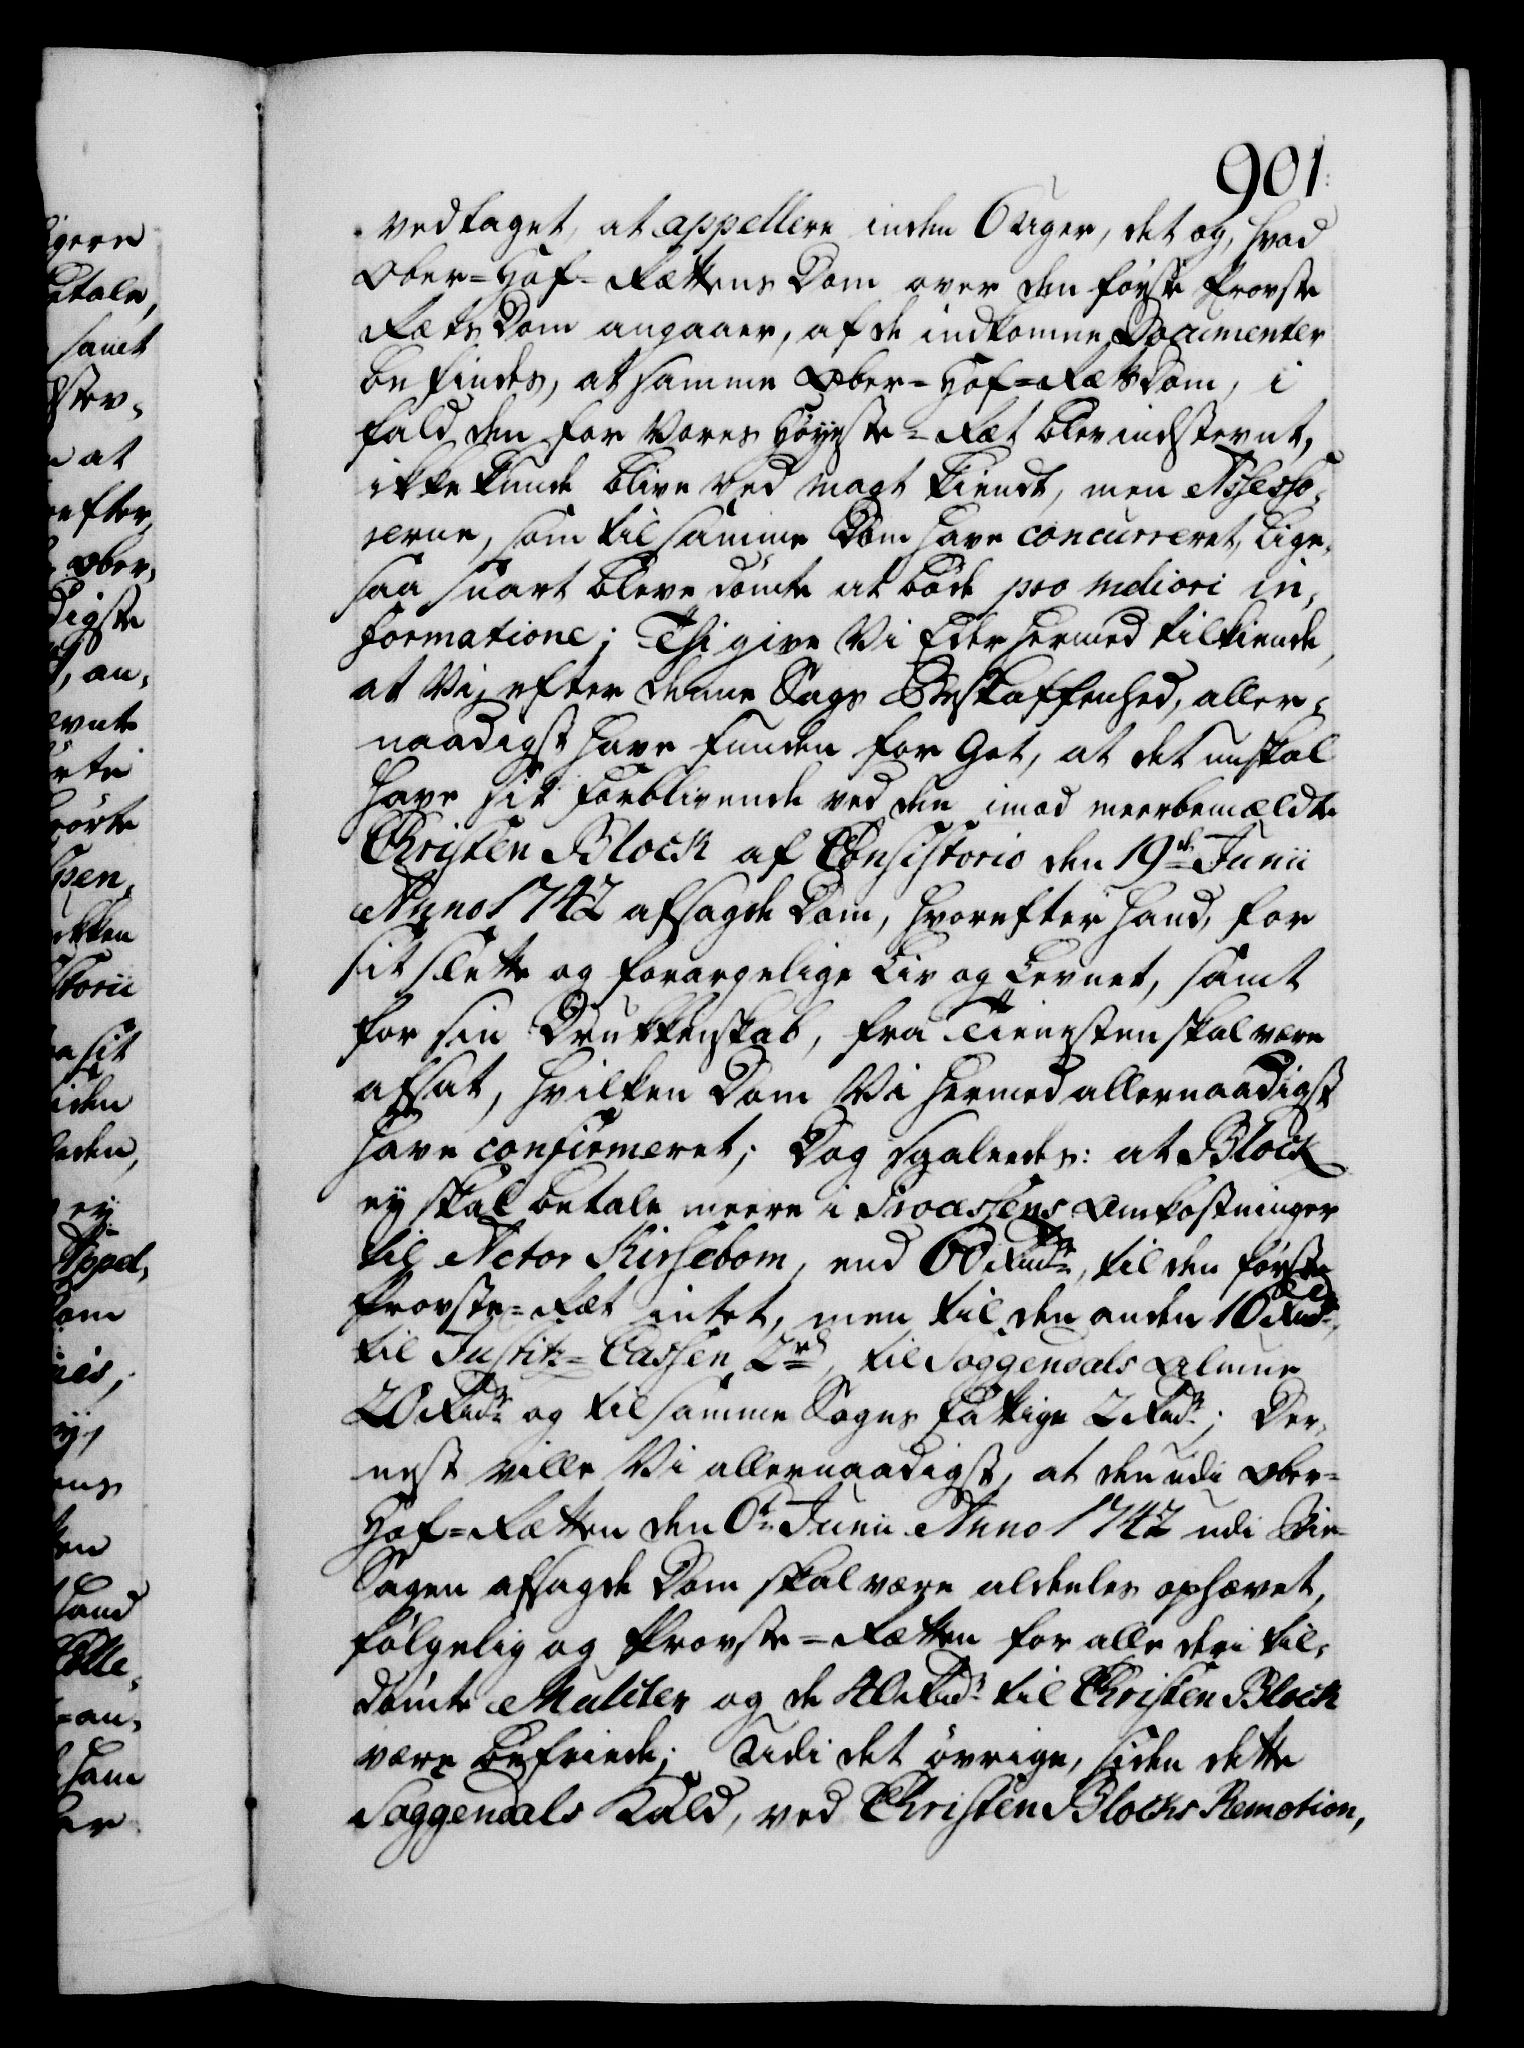 901.
vedtaget, at appellere inden 6 Uger, det og, hvad
Ober-Hof-Rættens Dom over den første Provste
Ræts Dom angaaer, af de indkomne Documenter
befindes, at samme Ober-Hof-Ræts Dom, i
fald den for Vores Høyeste-Ræt blev indstevnt,
ikke kunde blive ved magt kiendt, men Assesso-
rerne, som til samme Dom have concurreret, lige-
saa snart bleve dømte at bøde pro meliori in-
formatione; Thi give Vi Eder hermed tilkiende,
at Vi, efter denne Sags Beskaffenhed, aller-
naadigst have funden for Got, at det nu skal
have sit forblivende ved den imod meerbemældte
Christen Block af Consistorio den 19de Junii
Anno 1742 afsagde Dom, hvorefter hand, for
sit slette og forargelige Liv og Levnet, samt
for sin Drukkenskab, fra Tienesten skal være
afsat, hvilken Dom Vi hermed allernaadigst
have confirmeret; Dog saaledes: at Block
ey skal betale meere i Processens Omkostninger
til Actor Kirsebom, end 60 Rdr., til den første
Provste-Ræt intet, men til den anden 10 Rdr.,
til Justitz-Cassen 2rd, til Soggendals Almue
20 Rdr. og til samme Sogns Fattige 2 Rdr.; Der-
nest ville Vi allernaadigst, at den udi Ober-
Hof-Rætten den 6t. Junii Anno 1742 udi Bie-
Sagen afsagde Dom skal være aldeeles ophævet,
følgelig og Provste-Rætten for alle deri til-
dømte Mulcter og de 40 Rdr. til Christen Block
være befriede; Udi det øvrige, siden dette
Soggendals Kald, ved Christen Blocks Remotion,